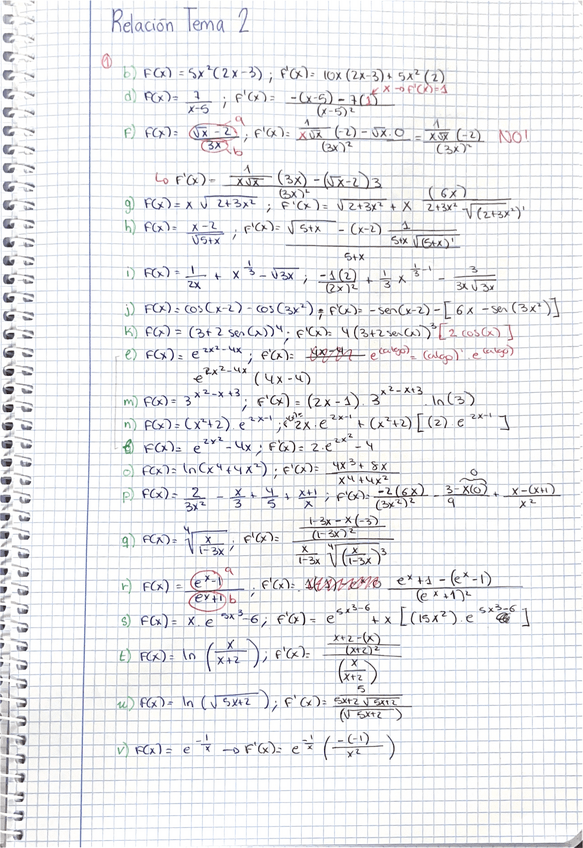 Relación Tema 2
①
b) F(x) = 5x²(2x-3) ; f'(x) = 10x(2x-3) + 5x²(2)
d) F(x) = 7/(x-5) ; f'(x) = (-(x-5) - 7(1))/(x-5)² x → f'(x)=1
F) F(x) = (√x - 2)/(3x) a b ; f'(x) = (1/(x√x) (-2) - √x·0)/(3x)² = (1/(x√x) (-2))/(3x)² NO!
↳ F'(x) = (1/(x√x) (3x) - (√x-2)3)/(3x)²
g) F(x) = x √(2+3x²) ; f'(x) = √(2+3x²) + x (6x)/(2+3x² √(2+3x²)')
h) F(x) = (x-2)/√(5+x) ; f'(x) = (√(5+x) - (x-2) 1/(5+x √(5+x)'))/(5+x)
i) F(x) = 1/(2x) + x^(1/3) - √3x ; (-1(2))/(2x)² + 1/3 x^(1/3 -1) - 3/(3x√3x)
j) F(x) = cos(x-2) - cos(3x²) ; f'(x) = -sen(x-2) - [6x - sen(3x²)]
k) F(x) = (3+2 sen(x))⁴ ; f'(x) = 4(3+2sen(x))³ [2 cos(x)]
e) F(x) = e^(2x²-4x) ; f'(x) = e^(algo) = (algo)' · e^(algo)
e^(2x²-4x) (4x-4)
m) F(x) = 3^(x²-x+3) ; f'(x) = (2x-1) · 3^(x²-x+3) · ln(3)
n) F(x) = (x²+2) · e^(2x-1) ; 2x · e^(2x-1) + (x²+2) [(2) · e^(2x-1)]
F(x) = e^(2x²) - 4x ; f'(x) = 2·e^(2x²) - 4
o) F(x) = ln(x⁴+4x²) ; f'(x) = (4x³+8x)/(x⁴+4x²)
p) F(x) = 2/(3x²) - x/3 + 4/5 + (x+1)/x ; f'(x) = (-2(6x))/(3x²)² - (3-x(0))/9 0 + (x-(x+1))/x²
q) F(x) = ⁴√(x/(1-3x)) ; f'(x) = ((1-3x-x(-3))/(1-3x)²)/(x/(1-3x) ⁴√(x/(1-3x))³)
r) F(x) = (eˣ-1)/(eˣ+1) a b ; f'(x) = (eˣ+1-(eˣ-1))/(eˣ+1)²
s) F(x) = x·e^(5x³-6) ; f'(x) = e^(5x3-6) + x [(15x²) · e^(5x3-6)]
t) F(x) = ln (x/(x+2)) ; f'(x) = ((x+2-(x))/(x+2)²)/(x/(x+2))
u) F(x) = ln (√(5x+2)) ; f'(x) = (5/(5x+2√(5x+2)))/(√(5x+2))
v) F(x) = e^(-1/x) → F'(x) = e^(-1/x) (-(-1)/x²)